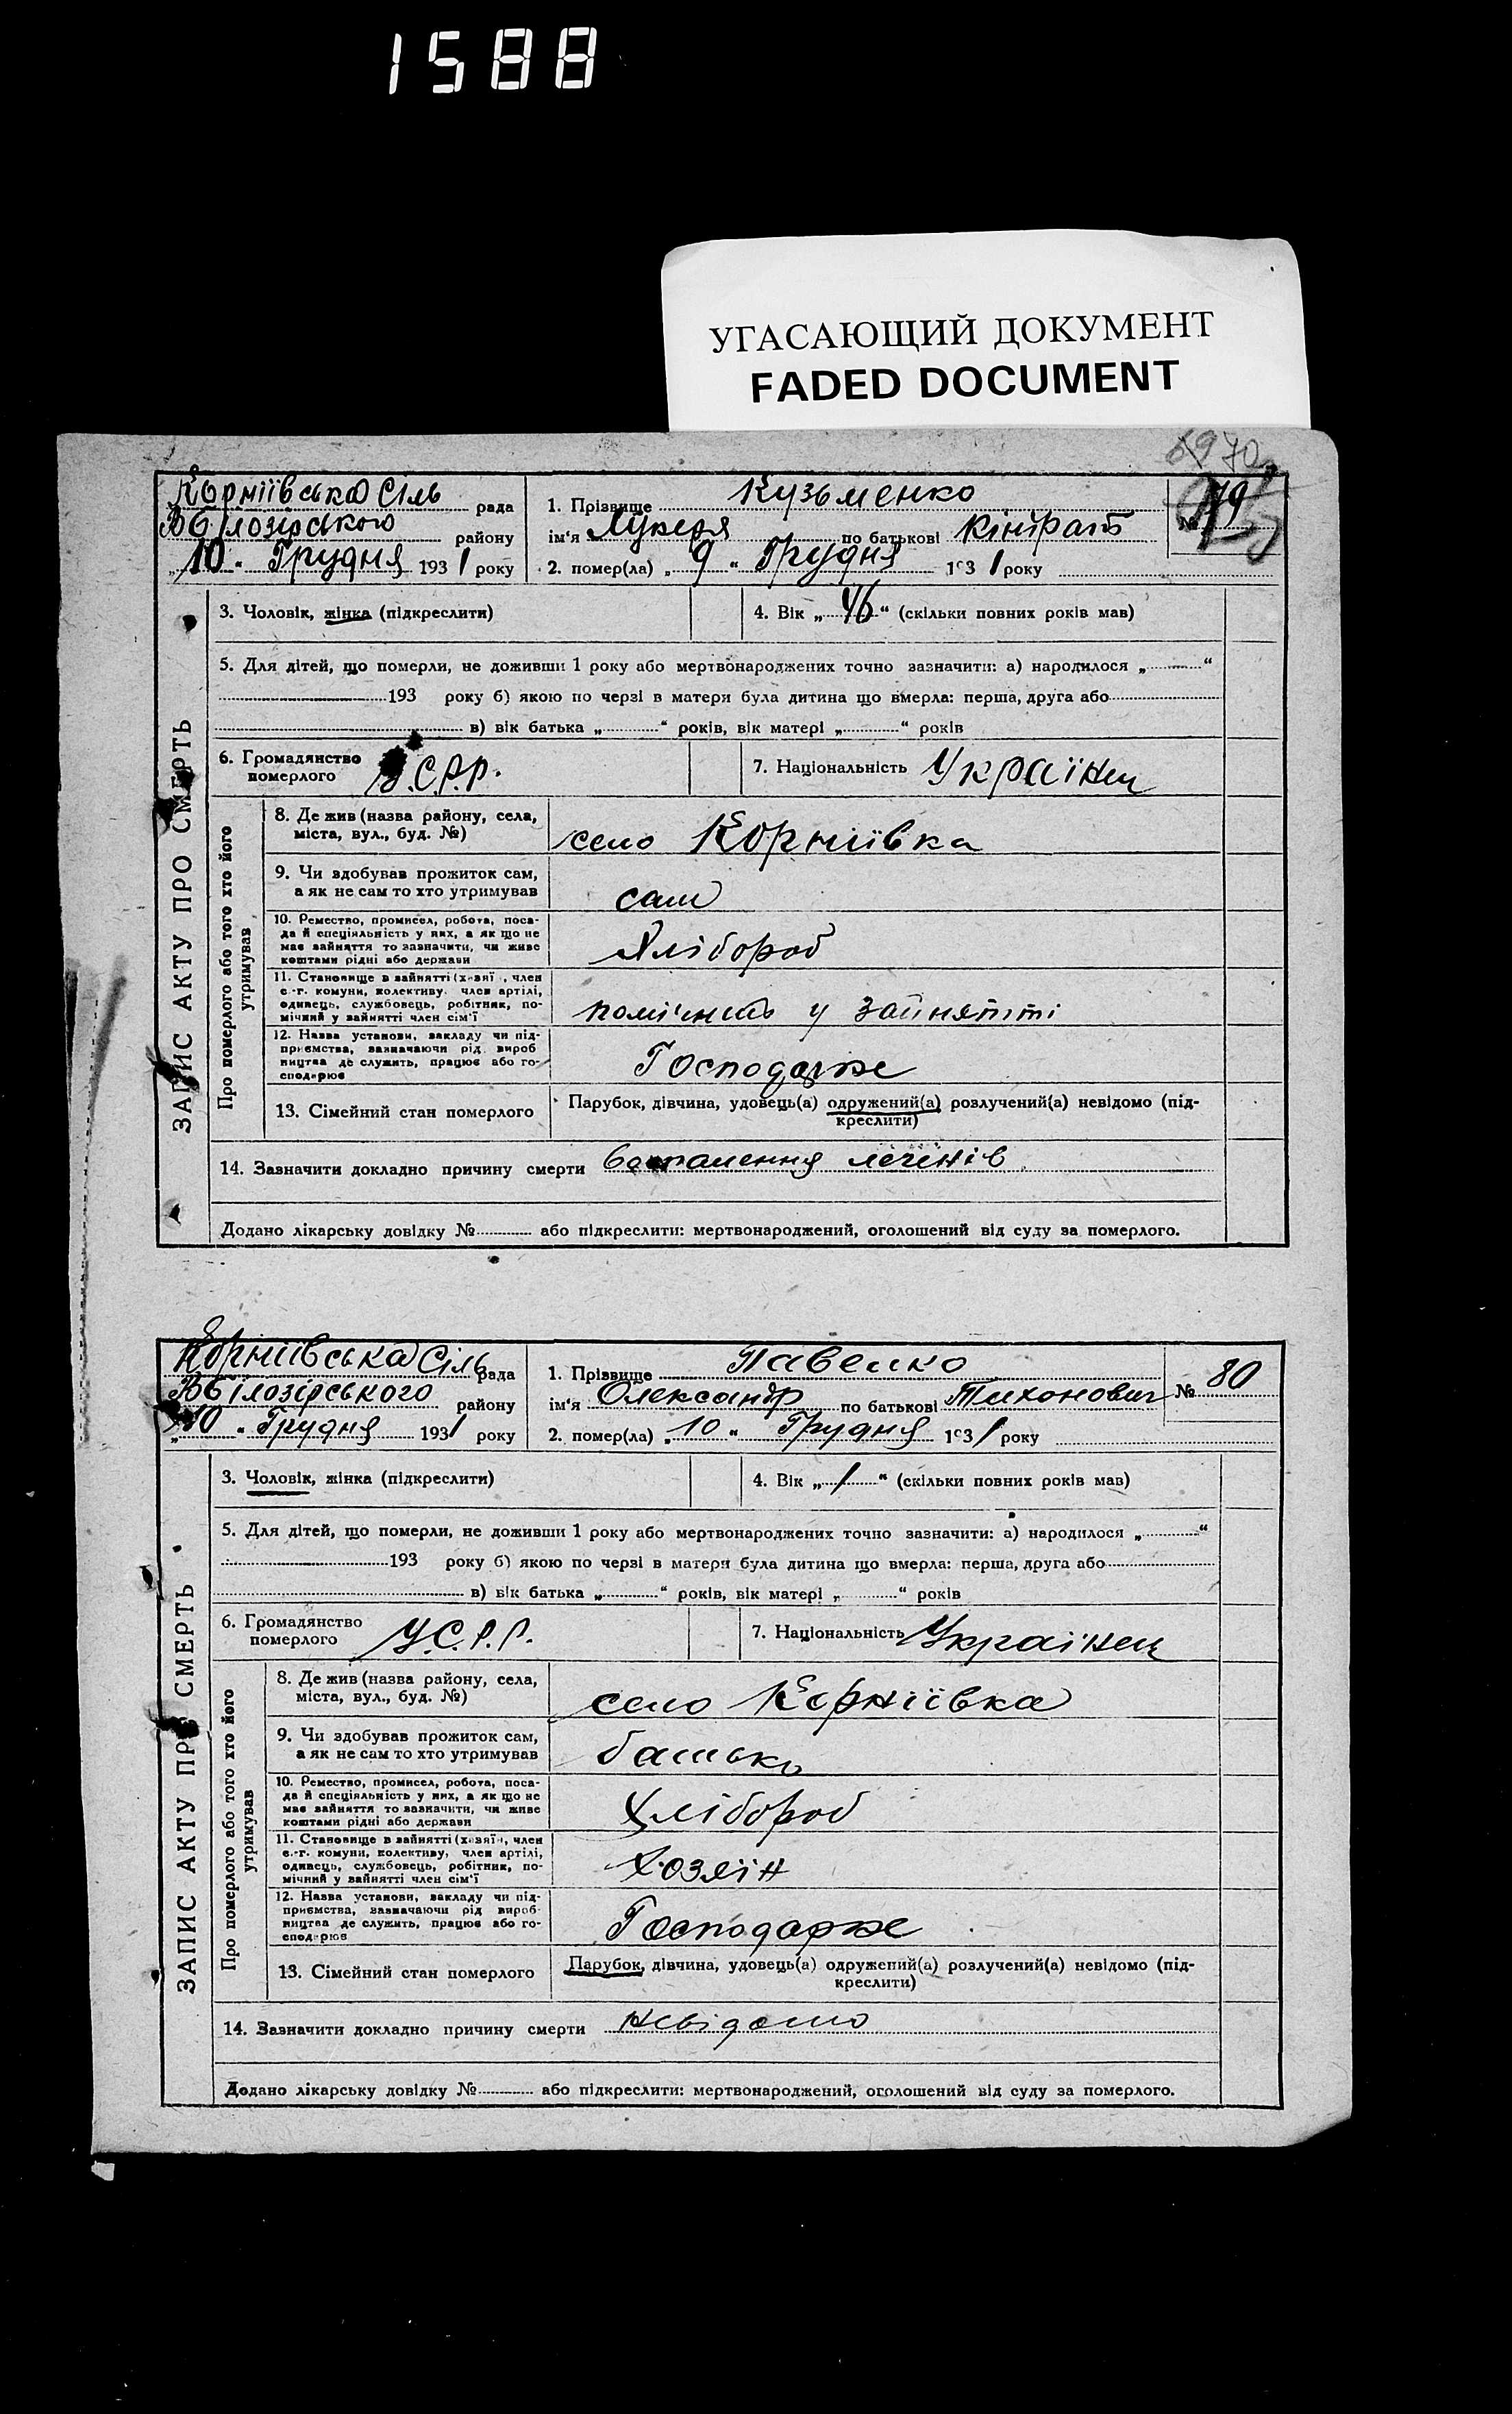 1588
УГАСАЮЩИЙ ДОКУМЕНТ
FADED DOCUMENT
6970
Корніівська Сіль рада
ВБілозірського району
„10" Грудня 1931 року
1. Прізвище Кузьменко
ім'я Лукеря по батькові Кіндрат
2. помер(ла) „9" Грудня 1931 року
№ 79
3. Чоловік, жінка (підкреслити)
4. Вік „46" (скільки повних років мав)
5. Для дітей, що померли, не доживши 1 року або мертвонароджених точно зазначити: а) народилося „ "
193 року б) якою по черзі в матери була дитина що вмерла: перша, друга або
в) вік батька „ " років, вік матері „ " років
6. Громадянство померлого У.С.Р.Р.
7. Національність Українец
ЗАПИС АКТУ ПРО СМЕРТЬ
Про померлого або того хто його утримував
8. Де жив (назва району, села,
міста, вул., буд. №)
село Корніївка
9. Чи здобував прожиток сам,
а як не сам то хто утримував
сам
10. Ремество, промисел, робота, поса-
да й спеціяльність у них, а як що не
має зайняття то зазначити, чи живе
коштами рідні або держави
Хлібороб
11. Становище в зайнятті (хазяї, член
с.-г. комуни, колективу, член артілі,
одинець, службовець, робітник, по-
мічний у зайнятті член сім'ї
у зайнятті
12. Назва установи, закладу чи під-
приємства, зазначаючи рід вироб
ництва де служить, працює або го-
сподарює
Господарже
13. Сімейний стан померлого
Парубок, дівчина, удовець(а) одружений(а) розлучений(а) невідомо (під-
креслити)
14. Зазначити докладно причину смерти легенів
Додано лікарську довідку № або підкреслити: мертвонароджений, оголошений від суду за померлого.
Корніівська Сіль рада
ВБілозірського району
„10" Грудня 1931 року
1. Прізвище Павенко
ім'я Олександр по батькові Тихонович
2. помер(ла) „10" Грудня 1931 року
№ 80
3. Чоловік, жінка (підкреслити)
4. Вік „1" (скільки повних років мав)
5. Для дітей, що померли, не доживши 1 року або мертвонароджених точно зазначити: а) народилося „ "
193 року б) якою по черзі в матери була дитина що вмерла: перша, друга або
в) вік батька „ " років, вік матері „ " років
6. Громадянство померлого У.С.Р.Р.
7. Національність Українец
ЗАПИС АКТУ ПРО СМЕРТЬ
Про померлого або того хто його утримував
8. Де жив (назва району, села,
міста, вул., буд. №)
село Корніївка
9. Чи здобував прожиток сам,
а як не сам то хто утримував
батько
10. Ремество, промисел, робота, поса-
да й спеціяльність у них, а як що не
має зайняття то зазначити, чи живе
коштами рідні або держави
Хлібороб
11. Становище в зайнятті (хазяї, член
с.-г. комуни, колективу, член артілі,
одинець, службовець, робітник, по-
мічний у зайнятті член сім'ї
Хозяїн
12. Назва установи, закладу чи під-
приємства, зазначаючи рід вироб-
ництва де служить, працює або го-
сподарює
Господарже
13. Сімейний стан померлого
Парубок, дівчина, удовець(а) одружений(а) розлучений(а) невідомо (під-
креслити)
14. Зазначити докладно причину смерти невідомо
Додано лікарську довідку № або підкреслити: мертвонароджений, оголошений від суду за померлого.